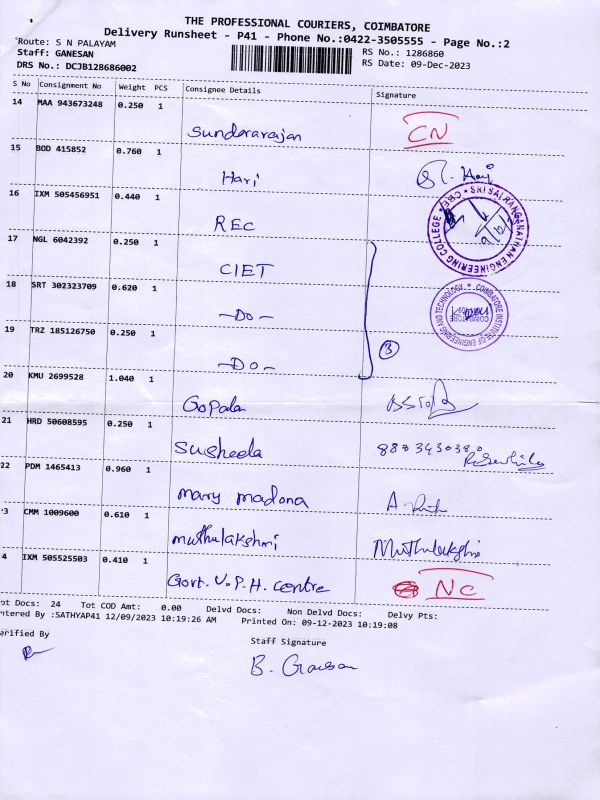 THE PROFESSIONAL COURIERS, COIMBATORE
Delivery Runsheet - P41 - Phone No.:0422-3505555 - Page No.:2
Route: S N PALAYAM
RS No.: 1286860
Staff: GANESAN
RS Date: 09-Dec-2023
DRS No.: DCJB128686002
S No Consignment No Weight PCS Consignee Details Signature
14 MAA 943673248 0.250 1
Sundararajan CN
15 BOD 415852 0.760 1
Hari Hari
16 IXM 505456951 0.440 1
REC
SRI SAI RANGANATHAN ENGINEERING COLLEGE * CBE *
17 NGL 6042392 0.250 1
CIET
18 SRT 302323709 0.620 1
-Do-
COIMBATORE INSTITUTE OF ENGINEERING AND TECHNOLOGY *
COIMBATORE
19 TRZ 185126750 0.250 1
-Do- 3
20 KMU 2699528 1.040 1
Gopalan
21 HRD 50608595 0.250 1
Susheela
22 PDM 1465413 0.960 1
mary madona
3 CMM 1009600 0.610 1
muthulakshmi Muthulakshmi
4 IXM 505525503 0.410 1
Govt. U.P.H. Centre NC
ot Docs: 24 Tot COD Amt: 0.00 Delvd Docs: Non Delvd Docs: Delvy Pts:
ntered By :SATHYAP41 12/09/2023 10:19:26 AM Printed On: 09-12-2023 10:19:08
erified By
Staff Signature
B. Ganesan